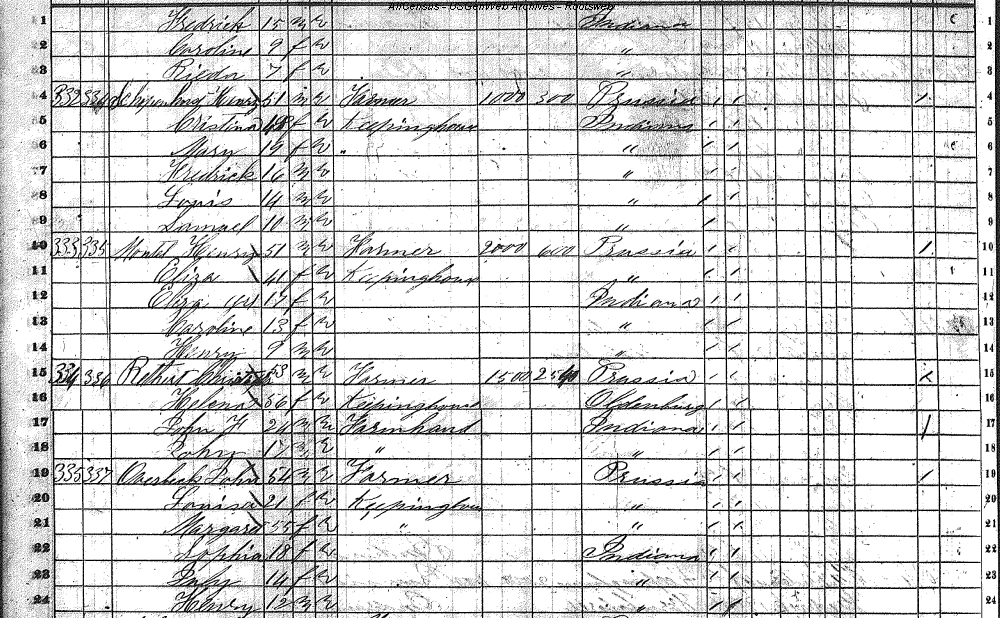 AHGensus - USGenWeb Archives - Rootsweb
1 Fredrick 15 m w Indiana 1
2 Caroline 9 f w " 2
3 7 f w " 3
4 332 334 Henry 51 m w Farmer 1000 300 Prussia / / / 4
5 Cristina f w Keepinghouse Indiana / / 5
6 Mary 19 f w " " / / 6
7 Fredrick 16 m w " / / 7
8 Louis 14 m w " / / 8
9 Samuel 10 m w " / 9
10 333 335 Henry 51 m w Farmer 2000 600 Prussia / / / 10
11 Eliza 41 f w Keepinghouse " / / 11
12 Eliza 17 f w Indiana / / 12
13 Caroline 13 f w " / / 13
14 Henry 9 m w " / / 14
15 334 336 Rethert 53 m w Farmer 1500 Prussia / / 15
16 Helena 56 f w Keepinghouse Oldenburg / / 16
17 John H 24 m w Farmhand Indiana / / / 17
18 John 17 m w " " / / 18
19 335 337 Overbeck John 54 m w Farmer Prussia / / / 19
20 Louisa 21 f w Keepinghouse " / / 20
21 Margaret 55 f w " " / / 21
22 Sophia 18 f w Indiana / / 22
23 14 f w " / / 23
24 Henry 12 m w " / / 24